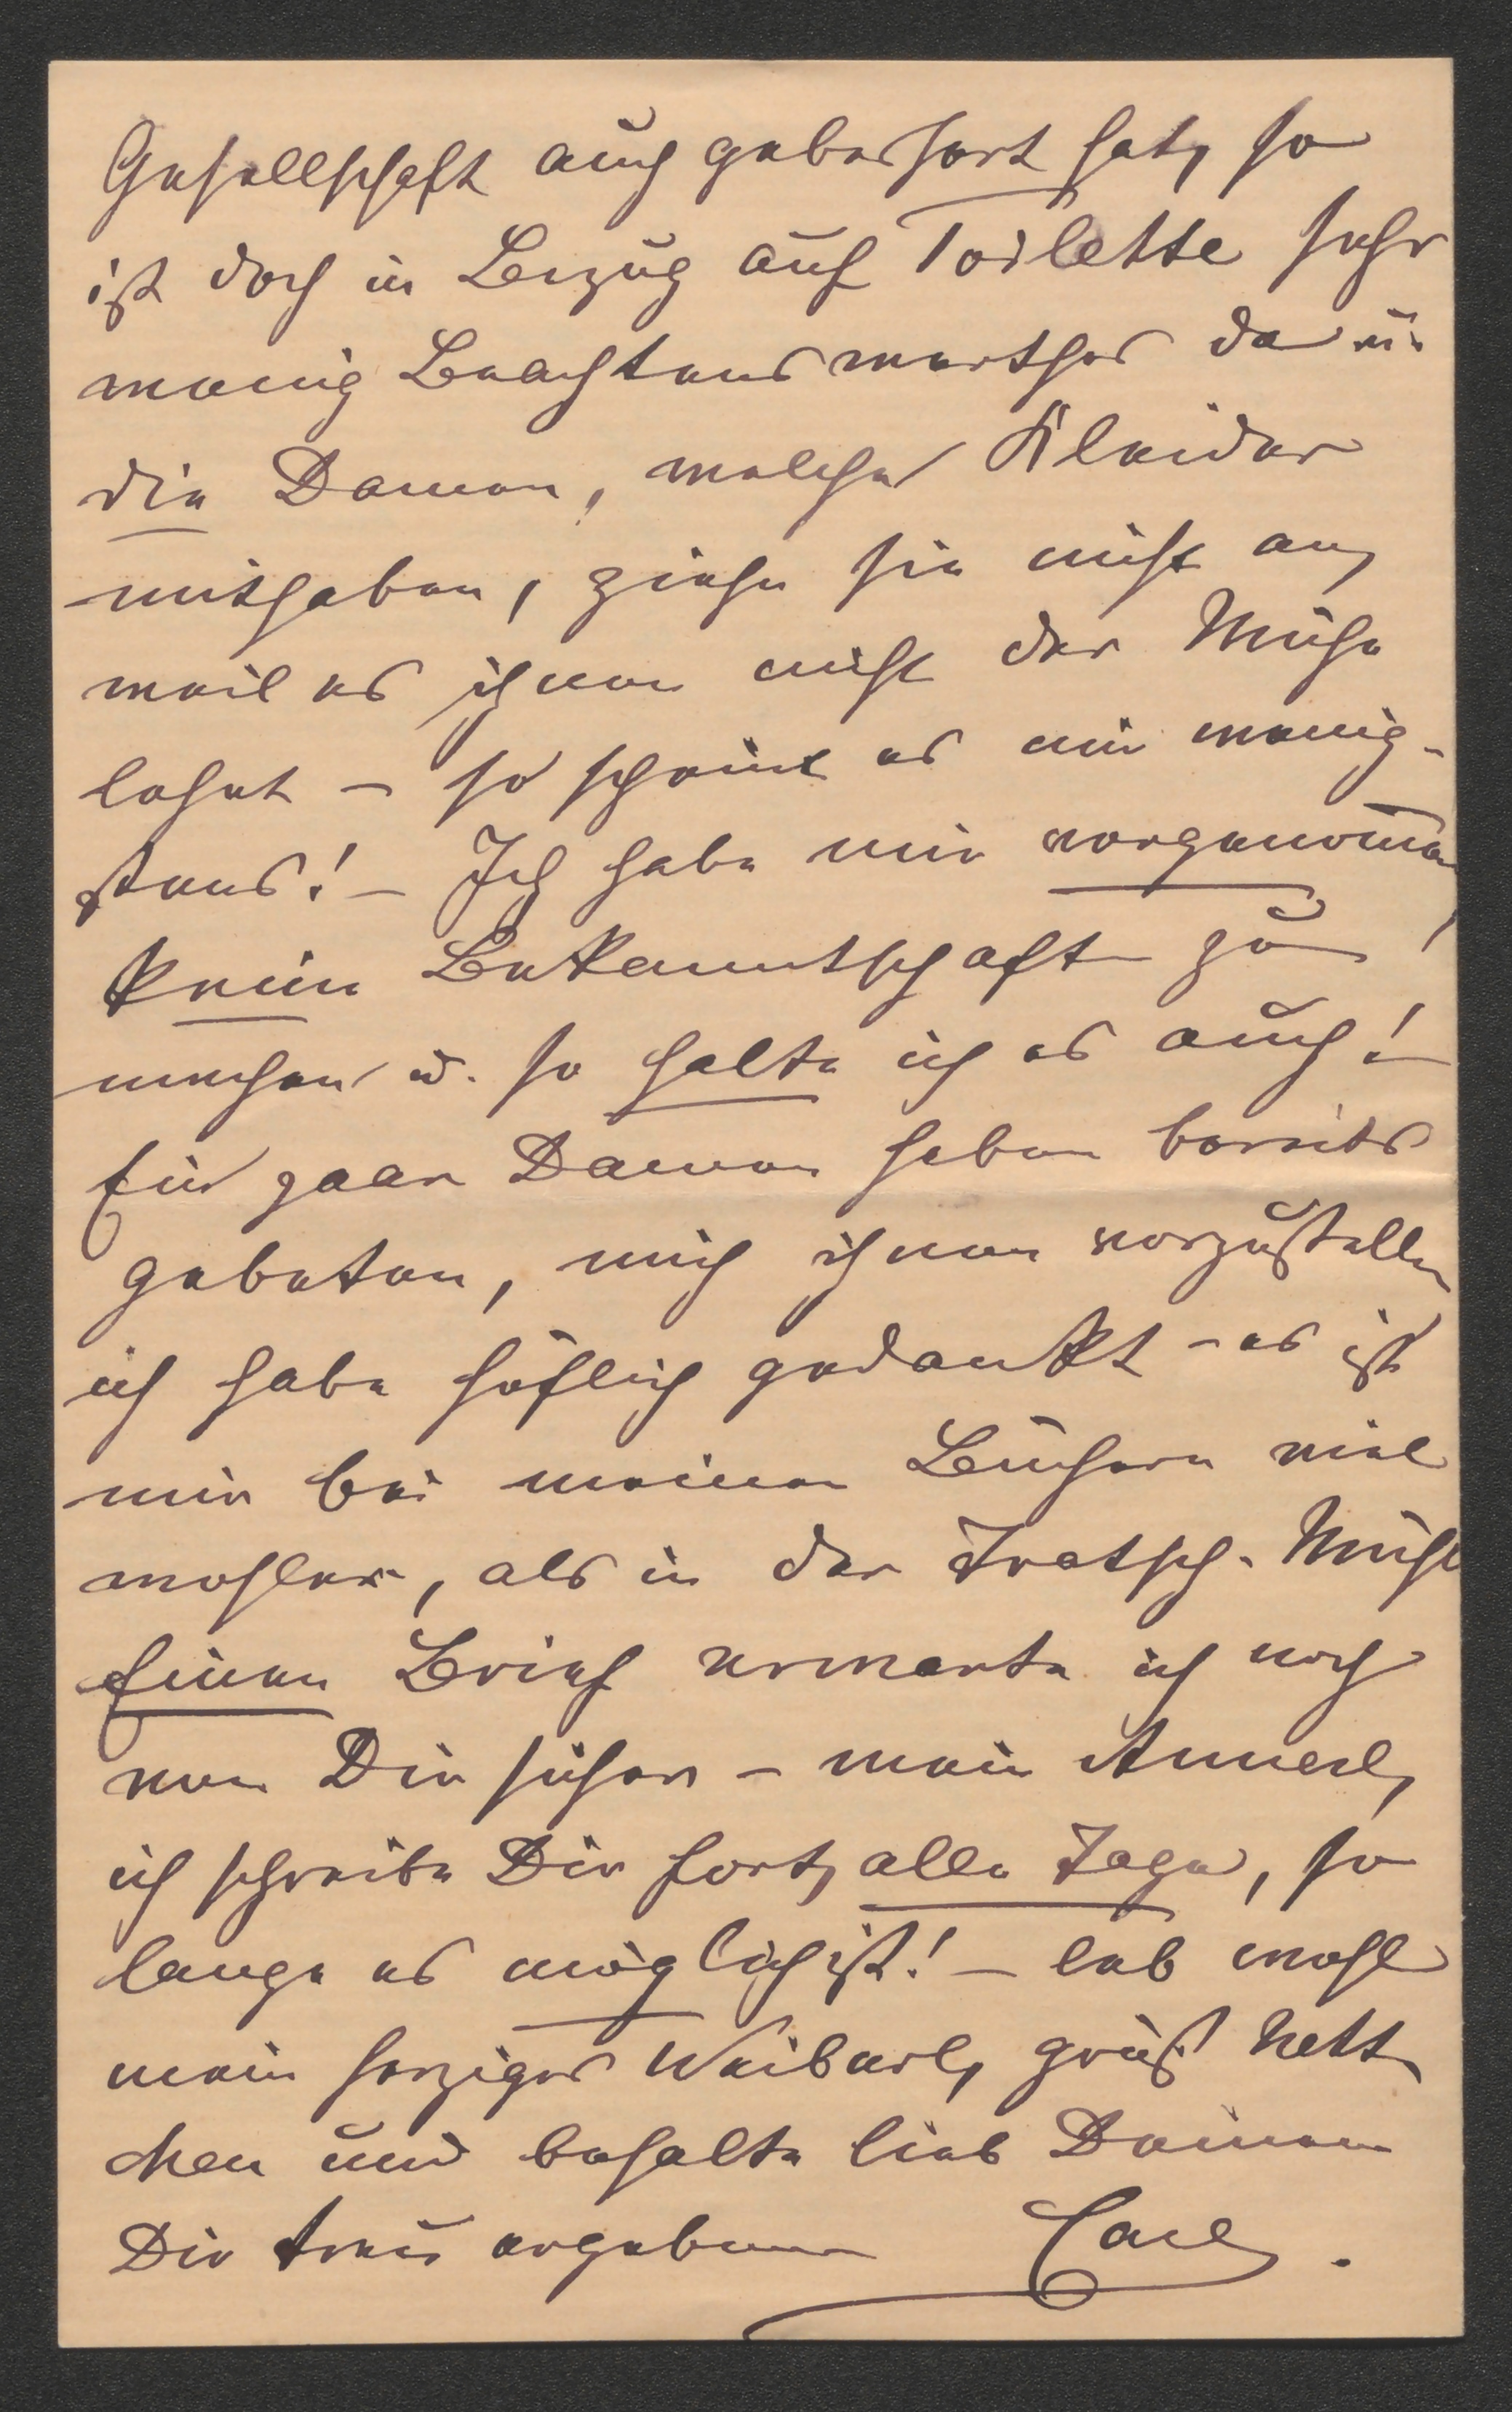 Gesellschaft auch gebessert hat, so
ist doch in Bezug auf Toilette sehr
wenig Beachtenswerthes da u.
die Damen, welche Kleider
mithaben, ziehen sie nicht an,
weil es ihnen nicht der Mühe
lohnt – so scheint es mir wenig-
stens! – Ich habe mir vorgenommen,
keine Bekanntschaft zu
machen u. so halte ich es auch!
Ein paar Damen haben bereits
gebeten, mich ihnen vorzustellen
ich habe höflich gedankt – es ist
mir bei meinen Büchern viel
wohler, als in der Tratsch-Mühle
Einen Brief erwarte ich noch
von Dir sicher – mein Annerl,
ich schreibe Dir fort, alle Tage, so
lange es möglich ist! – leb wohl
mein herziges Weiberl, grüß Nett
chen und behalte lieb Deinen
Dir treu ergebenen Carl.